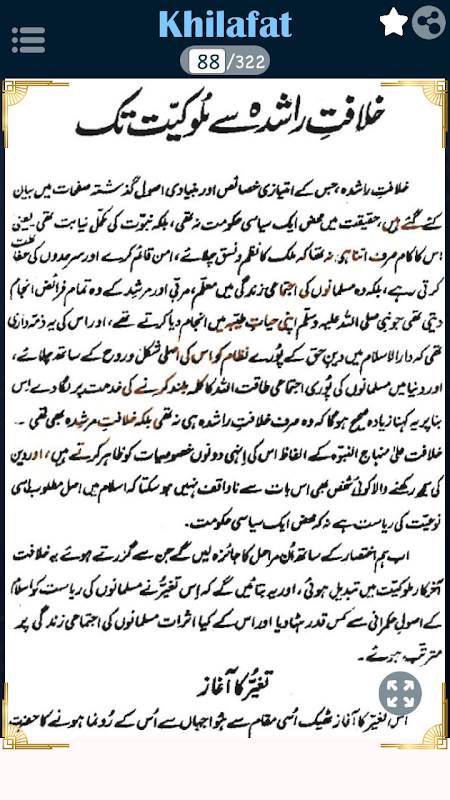 Khilafat
88/322
خلافتِ راشدہ سے ملوکیّت تک
خلافتِ راشدہ، جس کے امتیازی خصائص اور بنیادی اصول گذشتہ صفحات میں بیان
کئے گئے ہیں، حقیقت میں محض ایک سیاسی حکومت نہ تھی، بلکہ نبوّت کی مکمّل نیابت تھی۔ یعنی
اس کا کام صرف اتنا ہی نہ تھا کہ ملک کا نظم و نسق چلائے، امن قائم کرے اور سرحدوں کی حفاظت
کرتی رہے، بلکہ وہ مسلمانوں کی اجتماعی زندگی میں معلّم، مربّی اور مرشد کے وہ تمام فرائض انجام
دیتی تھی جو نبی صلی اللہ علیہ وسلم اپنی حیاتِ طیبہ میں انجام دیا کرتے تھے، اور اس کی یہ ذمّہ داری
تھی کہ دارالاسلام میں دینِ حق کے پورے نظام کو اس کی اصلی شکل و روح کے ساتھ چلائے،
اور دنیا میں مسلمانوں کی پُوری اجتماعی طاقت اللہ کا کلمہ بلند کرنے کی خدمت پر لگا دے۔ اس
بنا پر یہ کہنا زیادہ صحیح ہوگا کہ وہ صرف خلافتِ راشدہ ہی نہ تھی بلکہ خلافتِ مرشدہ بھی تھی۔
خلافت علیٰ منہاج النبوّۃ کے الفاظ اس کی انہی دونوں خصوصیات کو ظاہر کرتے ہیں، اور دین
کی سمجھ رکھنے والا کوئی شخص بھی اس بات سے ناواقف نہیں ہو سکتا کہ اسلام میں اصل مطلوب اسی
نوعیّت کی ریاست ہے نہ کہ محض ایک سیاسی حکومت۔
اب ہم اختصار کے ساتھ اُن مراحل کا جائزہ لیں گے جن سے گزرتے ہوئے یہ خلافت
آخر کار ملوکیّت میں تبدیل ہوئی، اور یہ بتائیں گے کہ اِس تغیّر نے مسلمانوں کی ریاست کو اسلام
کے اصولِ حکمرانی سے کس قدر ہٹا دیا اور اس کے کیا اثرات مسلمانوں کی اجتماعی زندگی پر
مترتب ہوئے۔
تغیّر کا آغاز
اس تغیّر کا آغاز ٹھیک اُسی مقام سے ہوا جہاں سے اُس کے رُونما ہونے کا حضرت